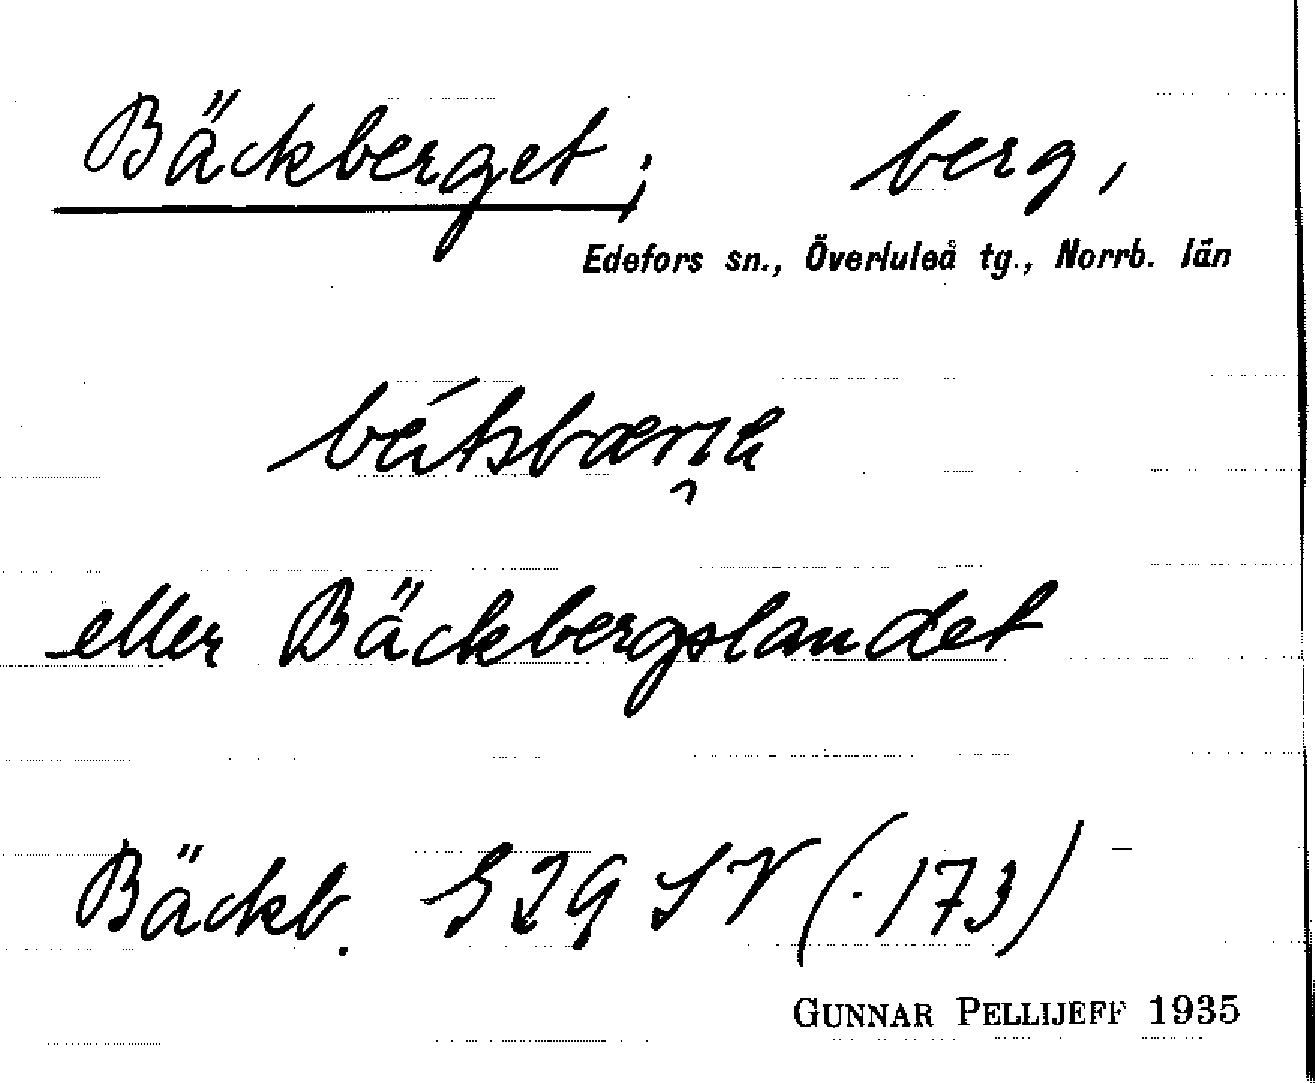 Bäckberget; berg,
Edefors sn., Överluleå tg., Norrb. län
eller Bäckbergslandet
Bäckb. S29 SV (·173)
GUNNAR PELLIJEFF 1935